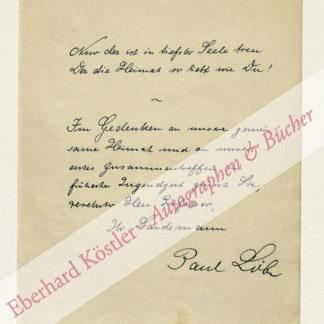 Nur der ist in tiefster Seele treu
Der die Heimat so liebt wie Du!
~
Im Gedenken an unsere gemein-
same Heimat und an unser
erstes Zusammentreffen
frühester Jugendzeit grüsst Sie,
verehrter Herr Professor,
Ihr Landsmann
Paul Löbe
Eberhard Köstler - Autographen & Bücher